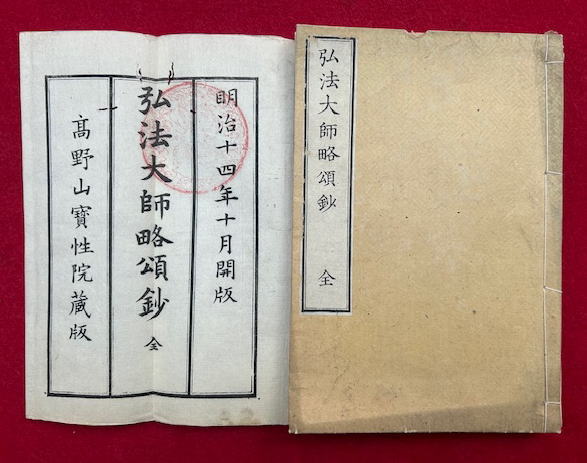 明治十四年十月開版
弘法大師略頌鈔 全
高野山寳性院蔵版
弘法大師略頌鈔 全